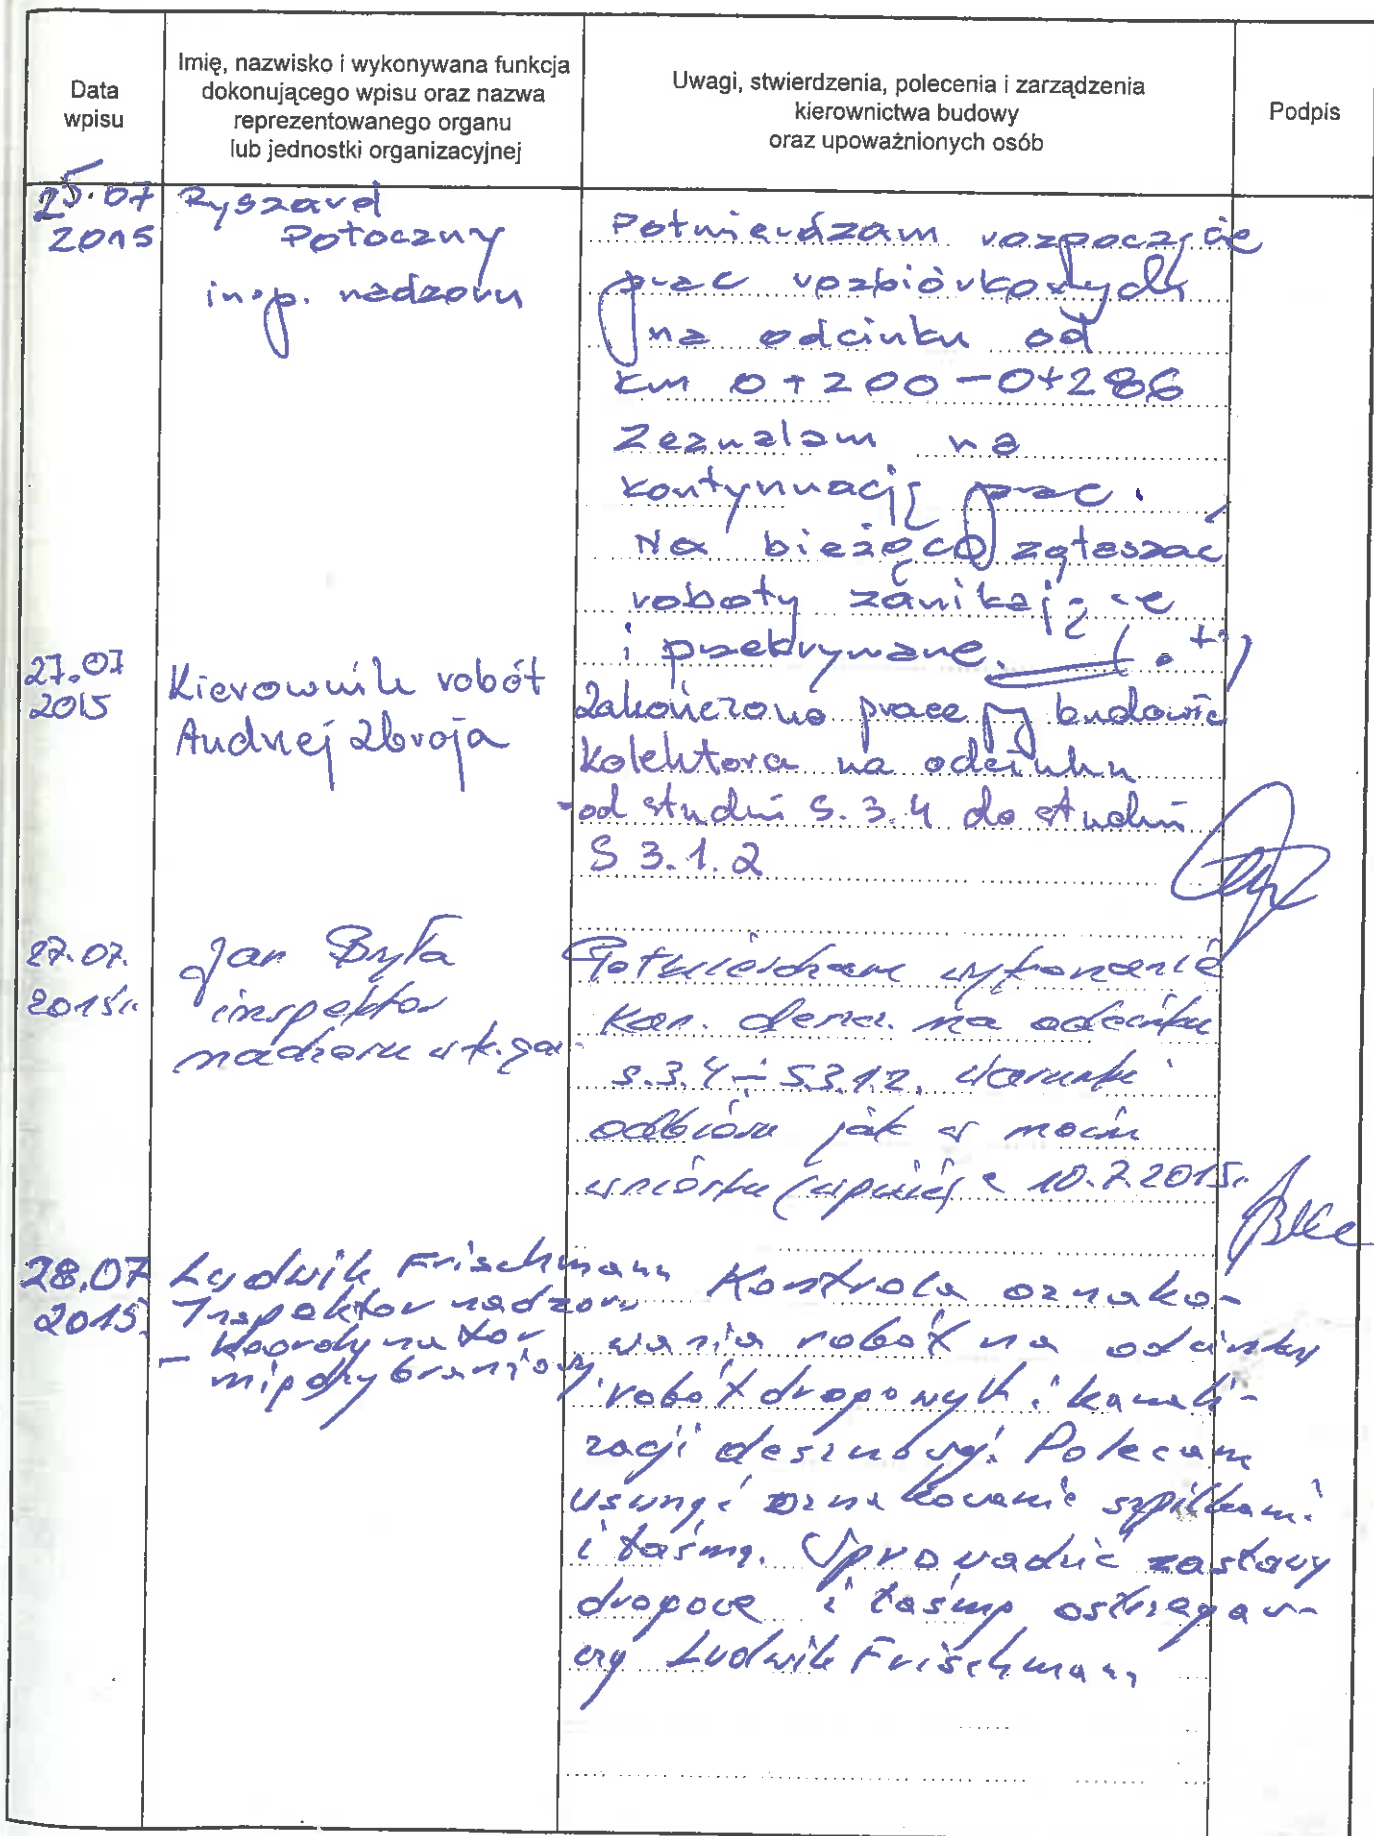 Data
wpisu
Imię, nazwisko i wykonywana funkcja
dokonującego wpisu oraz nazwa
reprezentowanego organu
lub jednostki organizacyjnej
Uwagi, stwierdzenia, polecenia i zarządzenia
kierownictwa budowy
oraz upoważnionych osób
Podpis
25.07
2015
Ryszard
Potoczny
insp. nadzoru
Potwierdzam rozpoczęcie
prac rozbiórkowych
na odcinku od
km 0+200-0+286
Zezwalam na
kontynuację prac.
Na bieżąco zgłaszać
roboty zanikające
i przekrywane.
27.07
2015
Kierownik robót
Andrzej Zbroja
Zakończono prace przy budowie
kolektora na odcinku
-od studni S.3.4 do studni
S 3.1.2
27.07.
2015r.
Jan Była
inspektor
nadzoru
Potwierdzam wykonanie
kan. deszcz. na odcinku
S.3.4 – S.3.1.2. Warunki
odbioru jak w moim
10.7.2015r.
28.07
2015.
Ludwik Frischmann
Inspektor nadzoru
- koordynator
międzybranżowy
Kontrola oznako-
wania robót na odcinku
robót drogowych i kanali-
zacji deszczowej. Polecam
usunąć oznakowanie szpilkami
i taśmą. Wprowadzić zastawy
drogowe i taśmę ostrzegaw-
czą Ludwik Frischmann